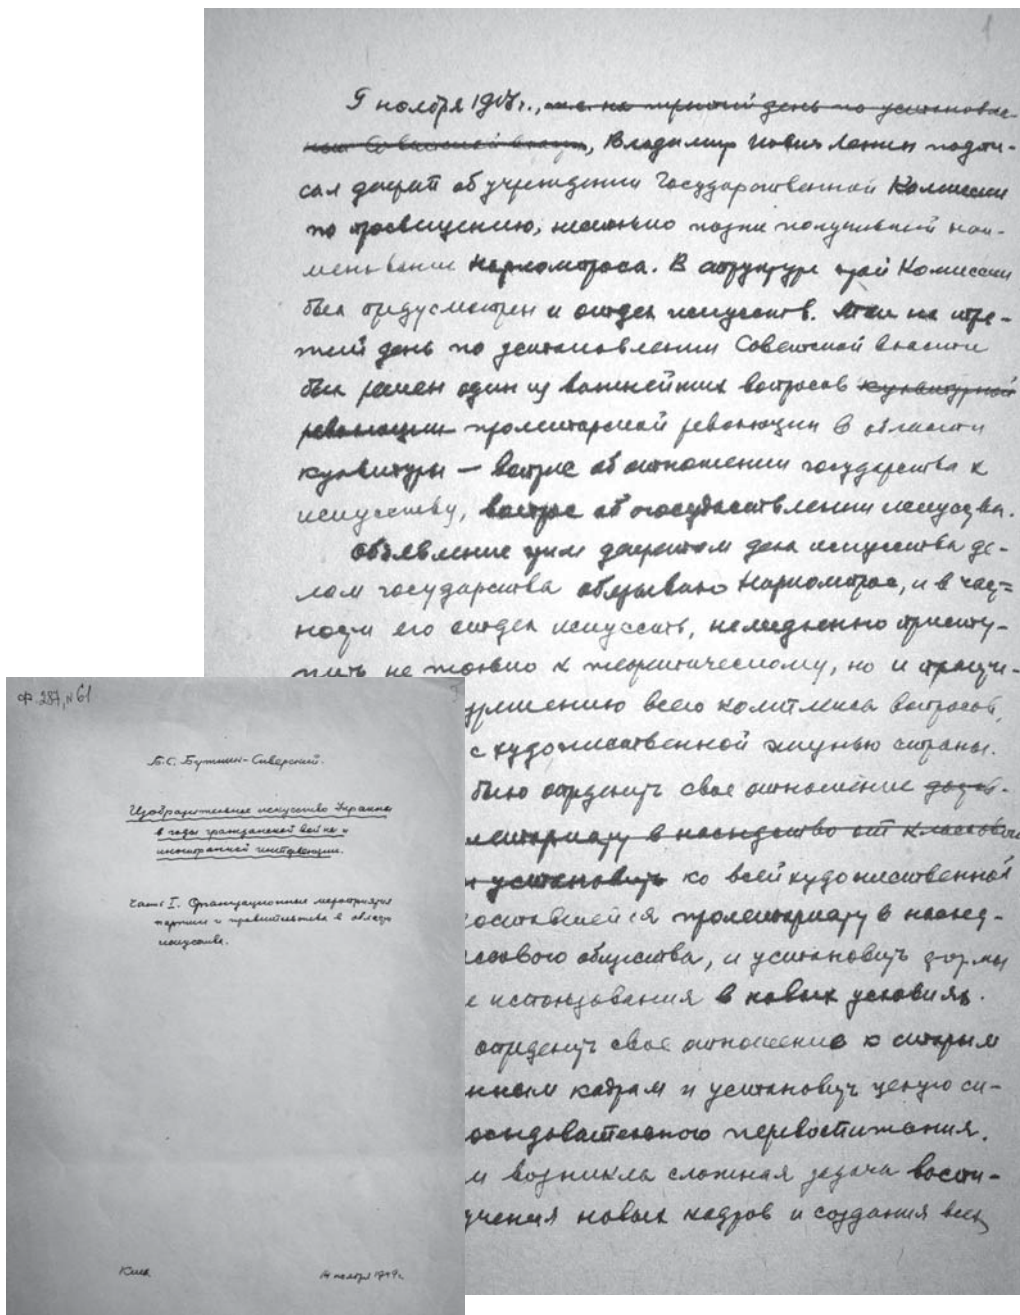 1
9 ноября 1917 г., т. е. на третий день по установле-
нии Советской власти, Владимир Ильич Ленин подпи-
сал декрет об учреждении Государственной Комиссии
по просвещению, несколько позже получившей наи-
менование Наркомпроса. В структуре этой Комиссии
был предусмотрен и отдел искусств. Так на тре-
тий день по установлении Советской власти
был решен один из важнейших вопросов культурной
революции пролетарской революции в области
культуры — вопрос об отношении государства к
искусству, вопрос об огосударствлении искусства.
Объявление этим декретом дела искусства де-
лом государства обязывало Наркомпрос, и в част-
ности его отдел искусств, немедленно присту-
пить не только к теоретическому, но и практи-
зрешению всего комплекса вопросов,
с художественной жизнью страны.
было определить свое отношение
пролетариату в наследство от классового
и установить ко всей художественной
оставшейся пролетариату в наслед-
ассового общества, и установить формы
е использования в новых условиях.
определить свое отношение к старым
нным кадрам и установить целую си-
последовательного перевоспитания.
м возникла сложная задача воспи-
учения новых кадров и создания всех
ф. 287, № 61
Б.С. Бутник-Сиверский.
Изобразительное искусство Украины
в годы гражданской войны и
иностранной интервенции.
Часть I. Организационные мероприятия
партии и правительства в области
искусства.
Киев
14 ноября 1949 г.